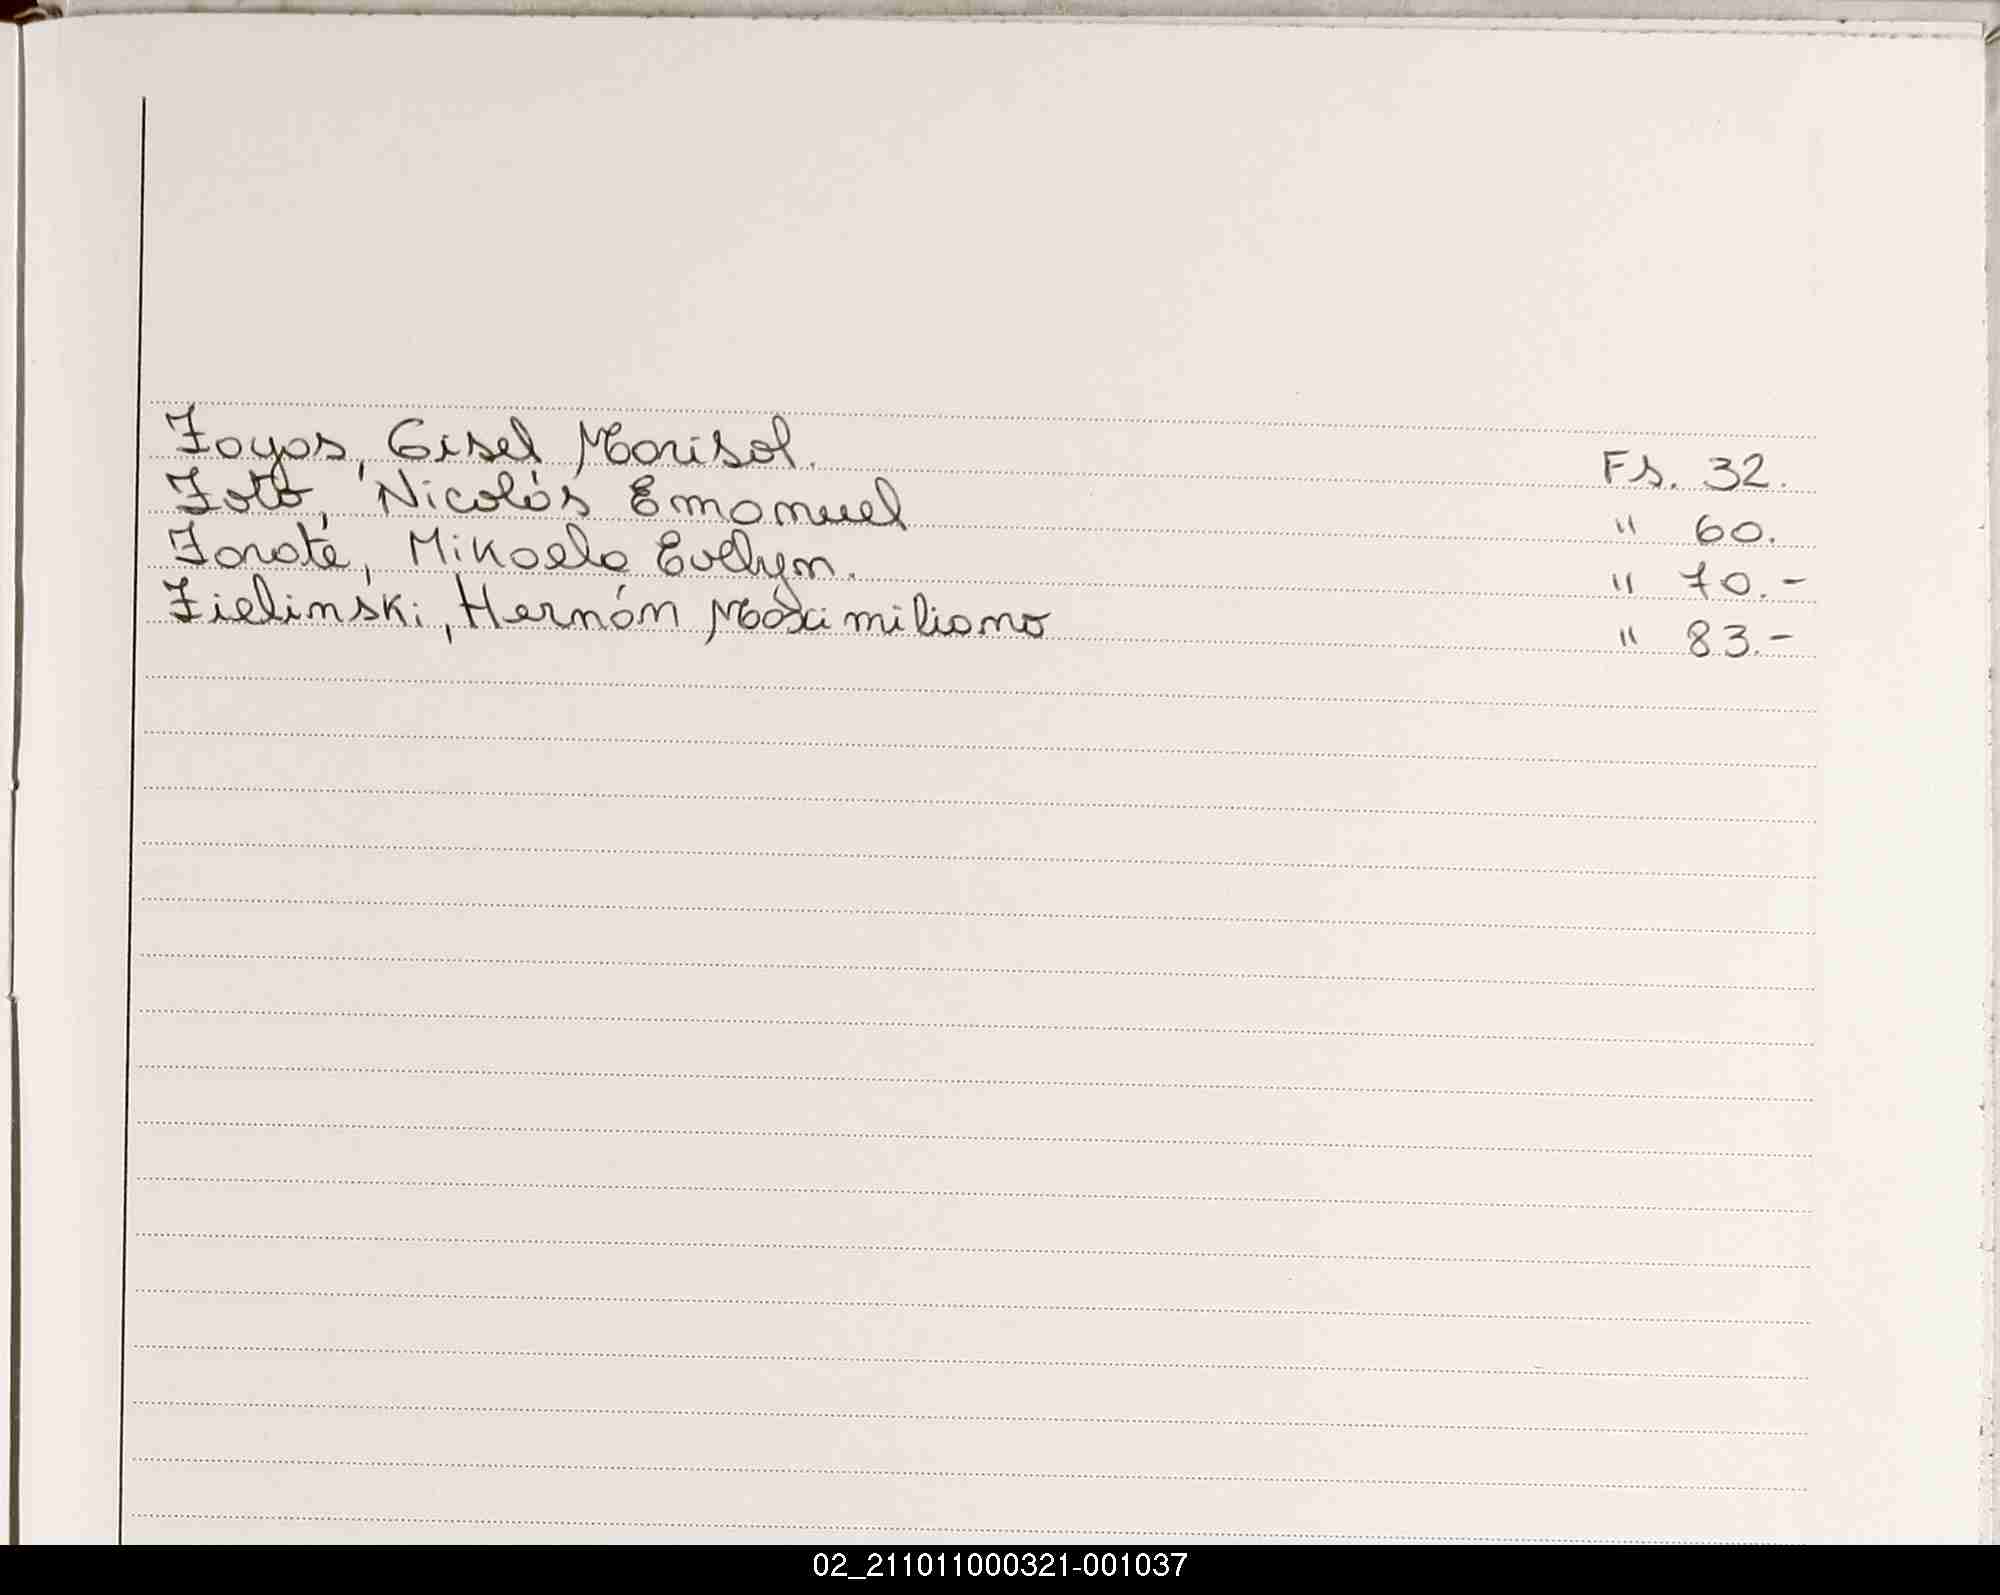 Zayas, Gisel Marisol. Fs. 32.
Zoto, Nicolás Emanuel " 60.
Zarate, Mikaela Evelyn. " 70.-
Zielinski, Hernán Maximiliano " 83.-
02_211011000321-001037